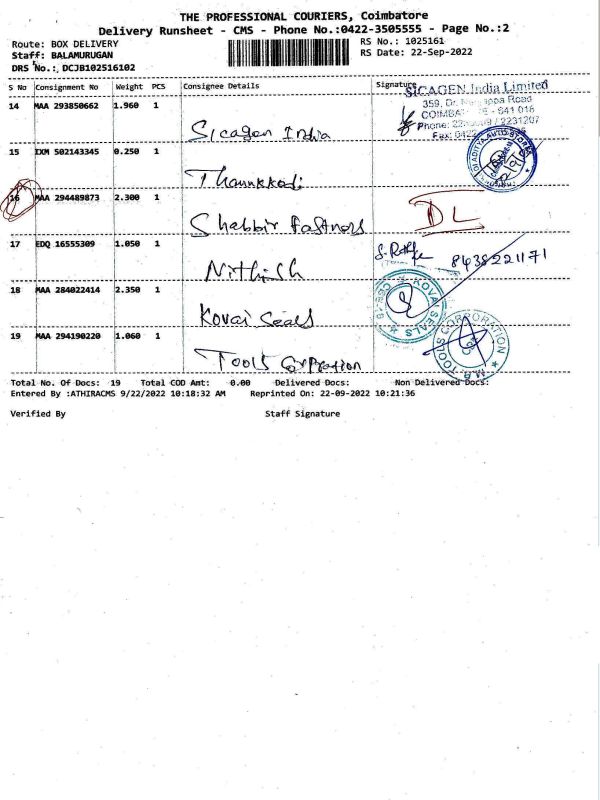 THE PROFESSIONAL COURIERS, Coimbatore
Delivery Runsheet - CMS - Phone No.:0422-3505555 - Page No.:2
Route: BOX DELIVERY
RS No.: 1025161
Staff: BALAMURUGAN
RS Date: 22-Sep-2022
DRS No.: DCJB102516102
S No Consignment No Weight PCS Consignee Details Signature
SICAGEN India Limited
14 MAA 293850662 1.960 1
359, Dr. Road
COIMBA - 641 018
Sicagen India
Phone: / 2231207
Fax: 0422
15 IXM 502143345 0.250 1
ADITYA AUTO STORES
16 MAA 294489873 2.300 1
DL
Shabbir Fastners
17 EDQ 16555309 1.050 1
8438221171
Nithish
18 MAA 284022414 2.350 1
KOVAI SEALS
Kovai Seals
19 MAA 294190220 1.060 1
TOOLS CORPORATION
Tools Corpration
Total No. Of Docs: 19 Total COD Amt: 0.00 Delivered Docs: Non Delivered Docs:
Entered By :ATHIRACMS 9/22/2022 10:18:32 AM Reprinted On: 22-09-2022 10:21:36
Verified By Staff Signature